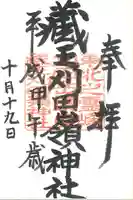 奉拝
蔵王刈田嶺神社
平成甲午歳
十月十九日